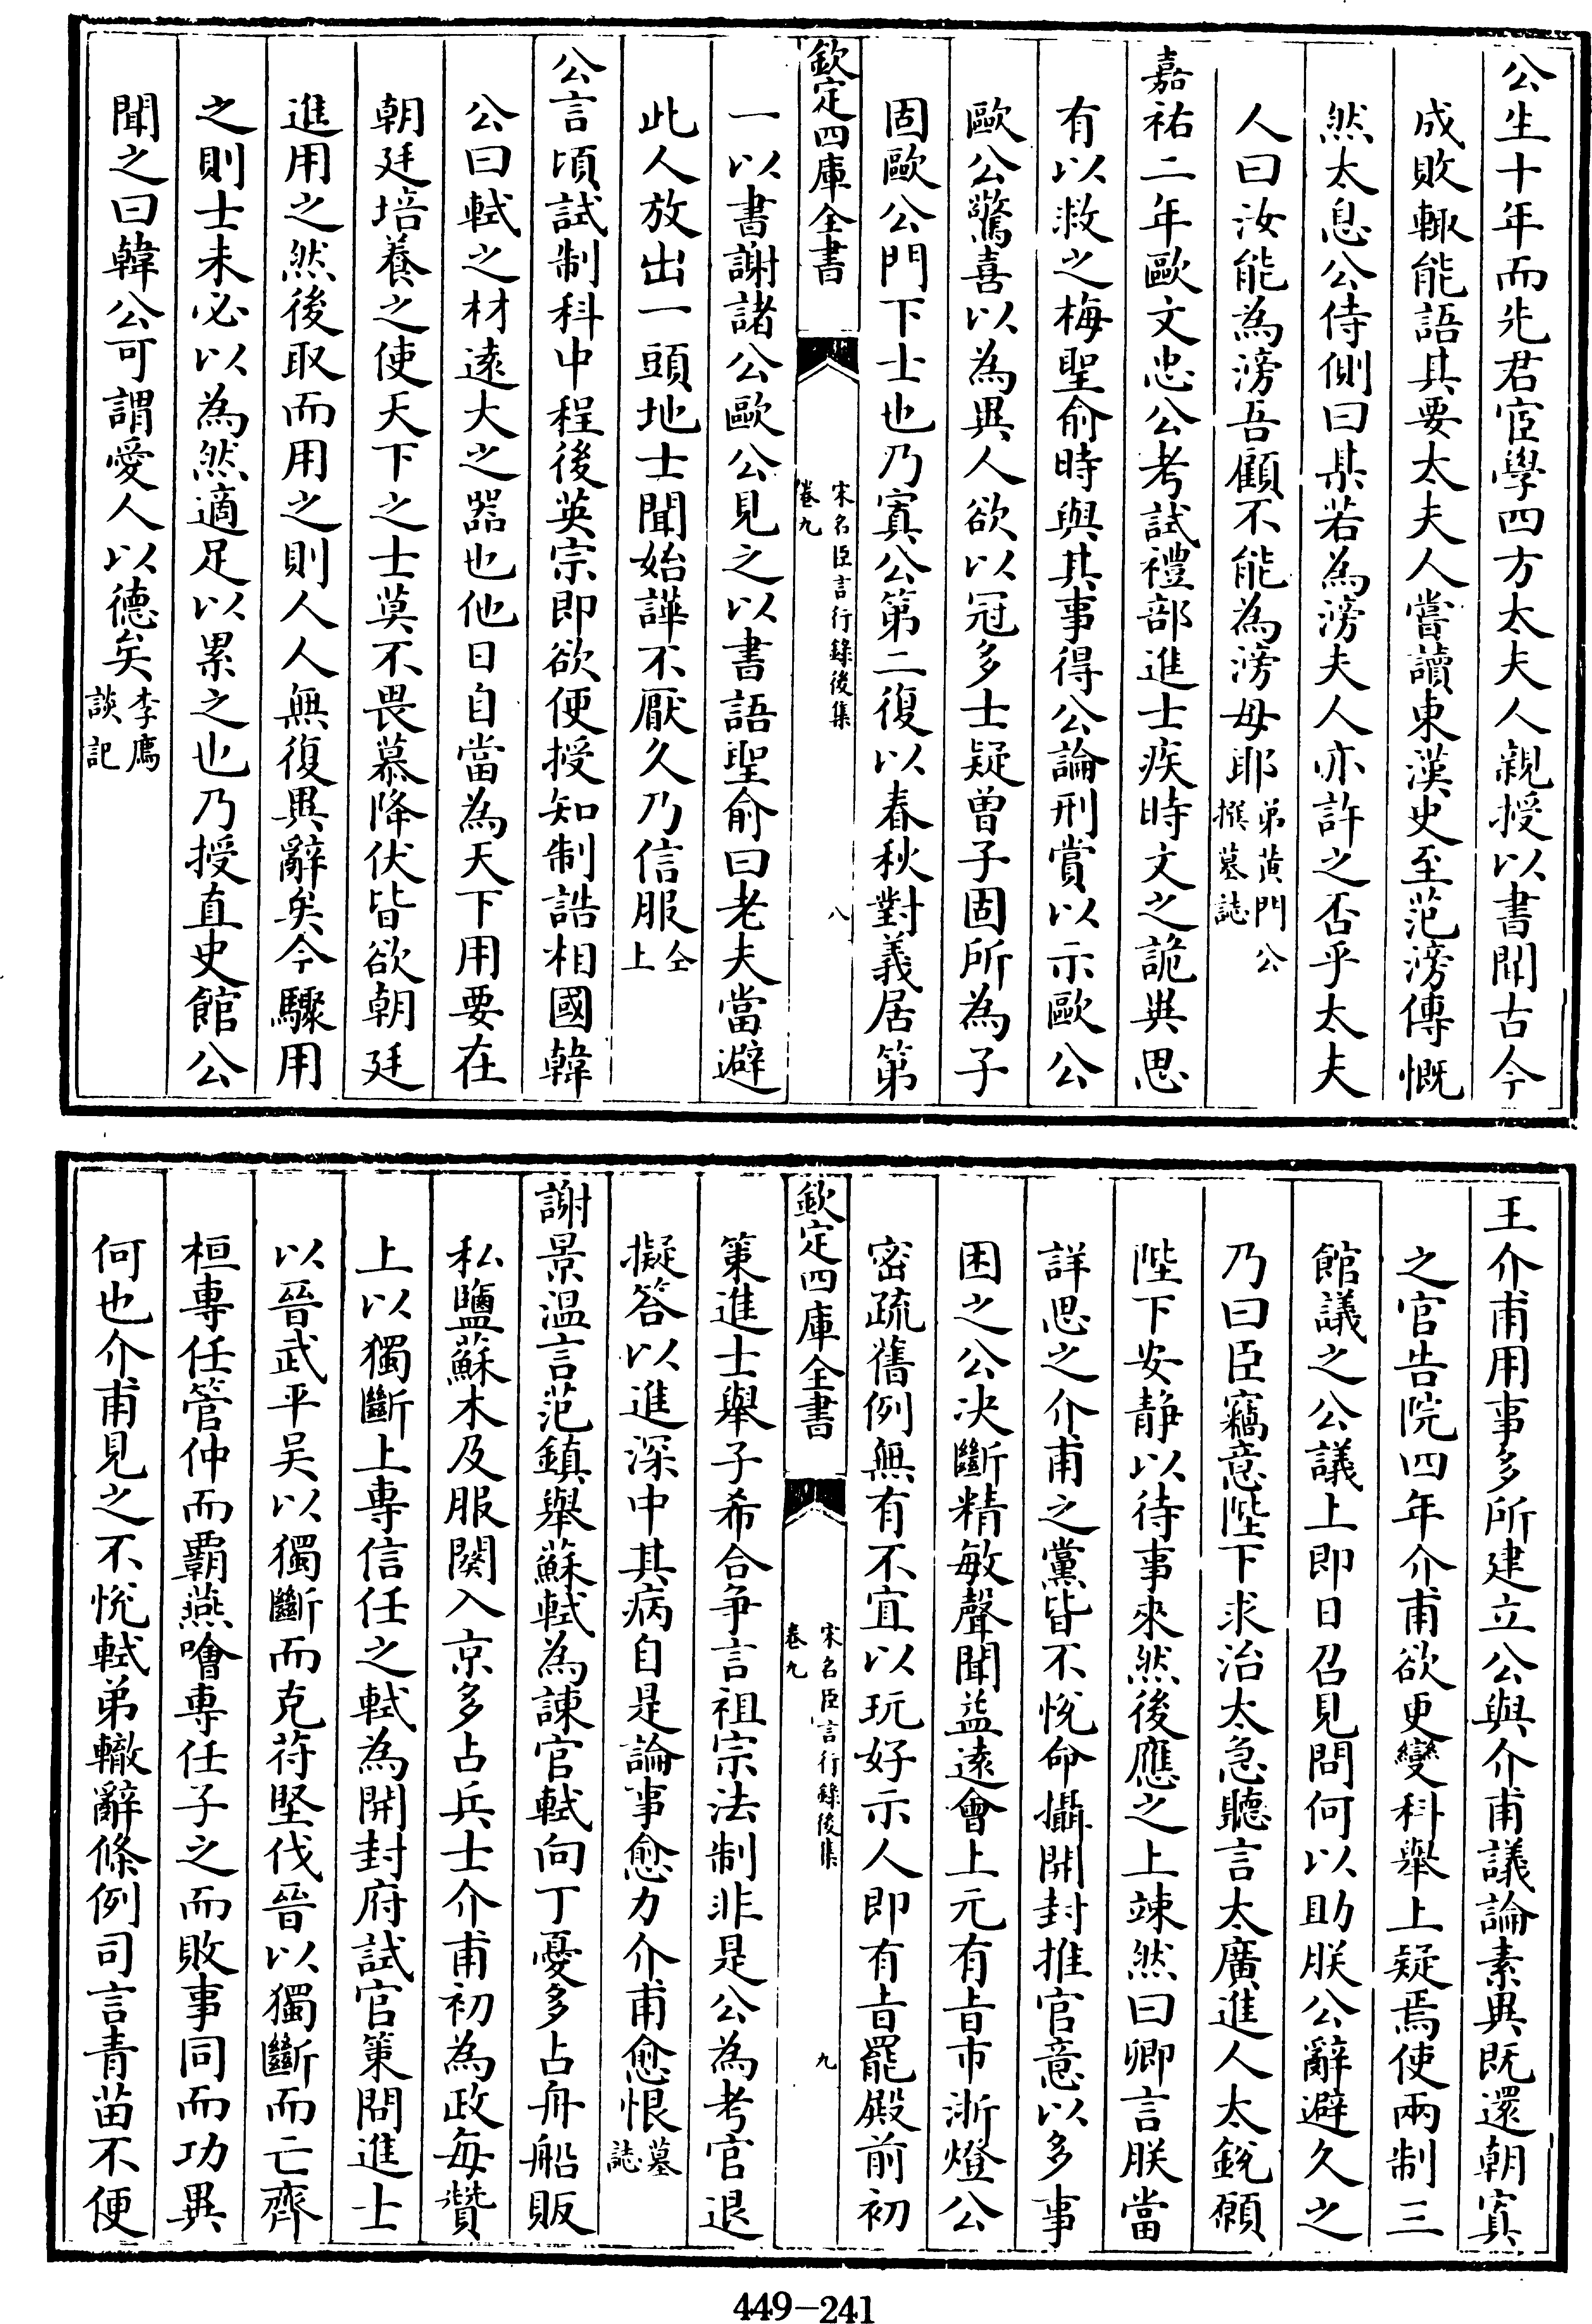 公生十年而先君宦學四方太夫人親授以書聞古今
成敗輙能語其要太夫人嘗讀東漢史至范滂傳慨
然太息公侍側曰某若為滂夫人亦許之否乎太夫
人曰汝能為滂吾顧不能為滂母耶弟黄門公撰墓誌
嘉祐二年歐文忠公考試禮部進士疾時文之詭異思
有以救之梅聖俞時與其事得公論刑賞以示歐公
歐公驚喜以為異人欲以冠多士疑曾子固所為子
固歐公門下士也乃寘公第二復以春秋對義居第
欽定四庫全書
宋名臣言行録後集
卷九
八
一以書謝諸公歐公見之以書語聖俞曰老夫當避
此人放出一頭地士聞始譁不厭久乃信服仝上
公言頃試制科中程後英宗即欲便授知制誥相國韓
公曰軾之材逺大之器也他日自當為天下用要在
朝廷培養之使天下之士莫不畏慕降伏皆欲朝廷
進用之然後取而用之則人人無復異辭矣今驟用
之則士未必以為然適足以累之也乃授直史館公
聞之曰韓公可謂愛人以德矣李廌談記
王介甫用事多所建立公與介甫議論素異既還朝寘
之官告院四年介甫欲更變科舉上疑焉使兩制三
館議之公議上即日召見問何以助朕公辭避久之
乃曰臣竊意陛下求治太急聽言太廣進人太鋭願
陛下安靜以待事來然後應之上竦然曰卿言朕當
詳思之介甫之黨皆不悅命攝開封推官意以多事
困之公决斷精敏聲聞益逺會上元有㫖市浙燈公
密疏舊例無有不宜以玩好示人即有㫖罷殿前初
欽定四庫全書
宋名臣言行録後集
卷九
九
策進士舉子希合爭言祖宗法制非是公為考官退
擬答以進深中其病自是論事愈力介甫愈恨墓誌
謝景温言范鎮舉蘇軾為諫官軾向丁憂多占舟船販
私鹽蘇木及服闋入京多占兵士介甫初為政每贊
上以獨斷上專信任之軾為開封府試官策問進士
以晉武平吴以獨斷而克苻堅伐晉以獨斷而亡齊
桓專任管仲而覇燕噲專任子之而敗事同而功異
何也介甫見之不悅軾弟轍辭條例司言青苗不便
449-241